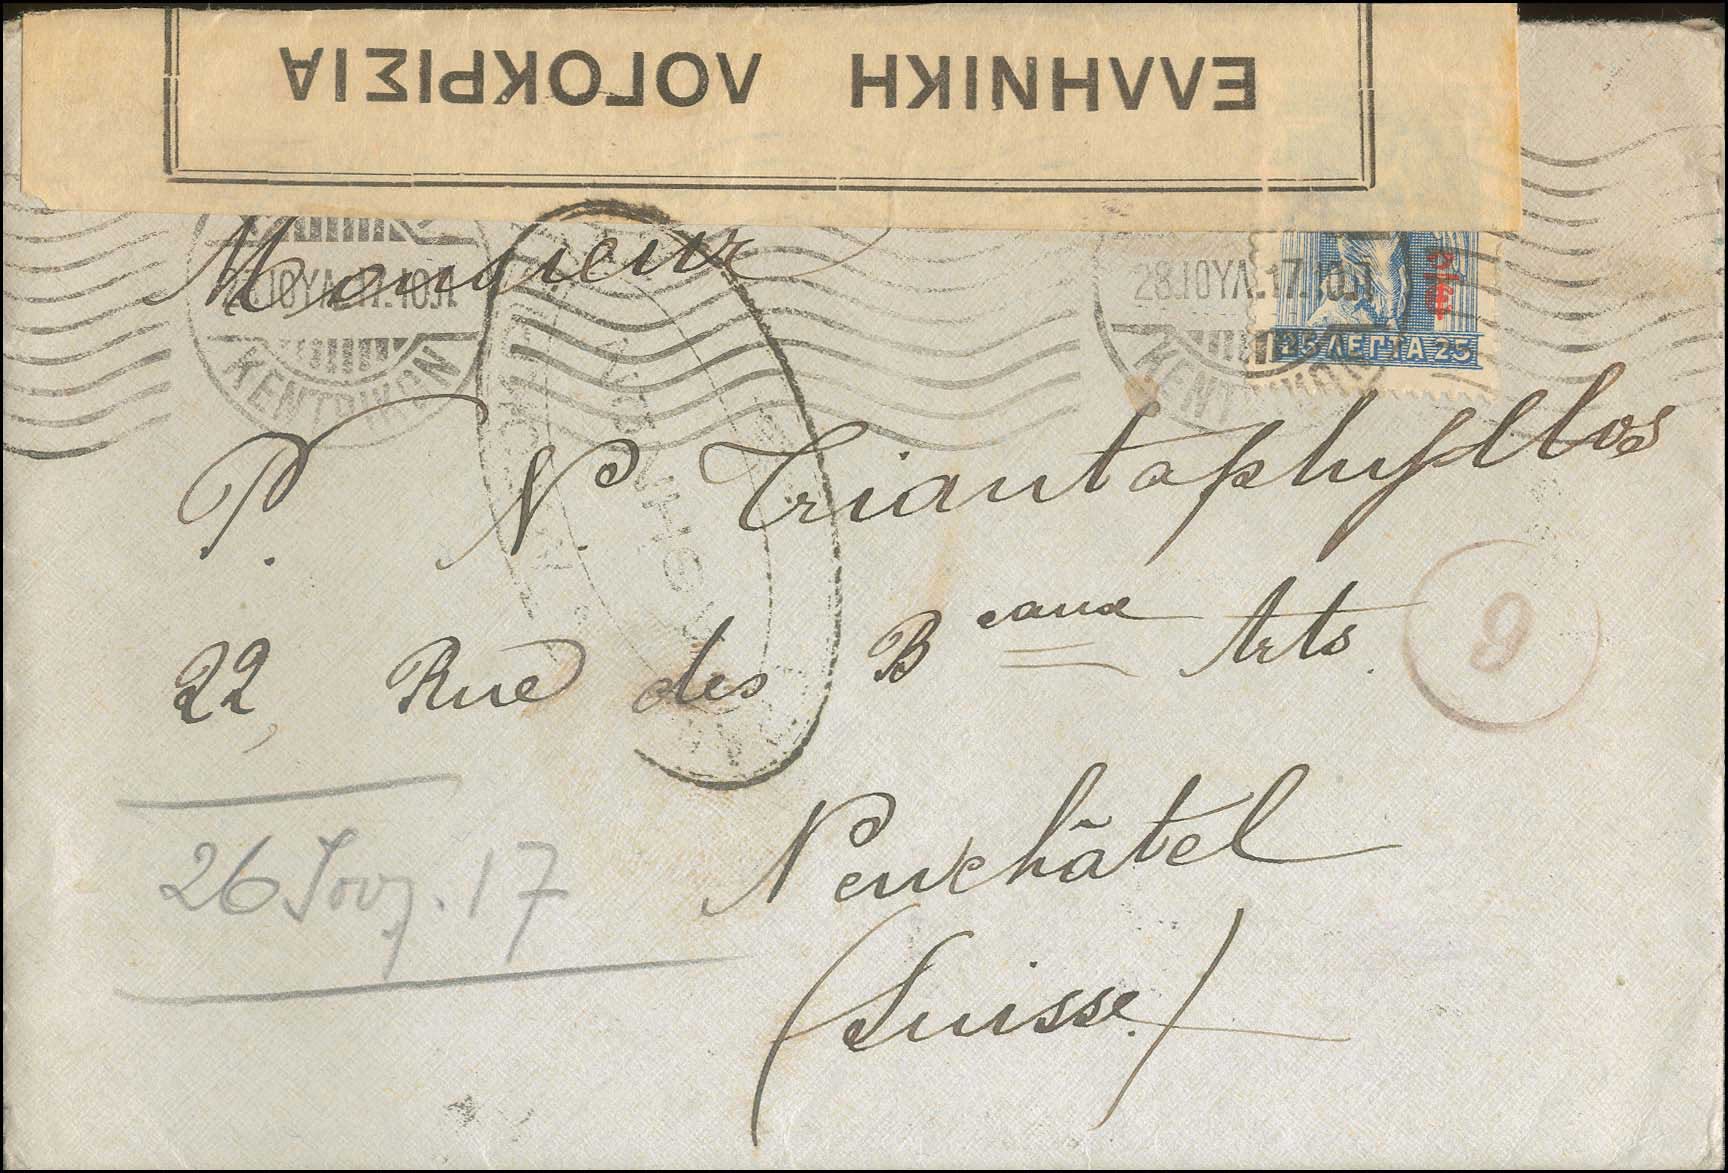 ΕΛΛΗΝΙΚΗ ΛΟΓΟΚΡΙΣΙΑ
Monsieur
ΙΟΥΛ.17.10Π
ΚΕΝΤΡΙΚΟΝ
28.ΙΟΥΛ.17.10Π
ΚΕΝΤΡΙΚΟΝ
25 ΛΕΠΤΑ 25
P. N. Triantaphyllos
22, Rue des Beaux Arts.
9
Neuchâtel
(Suisse)
26 Ιουλ. 17